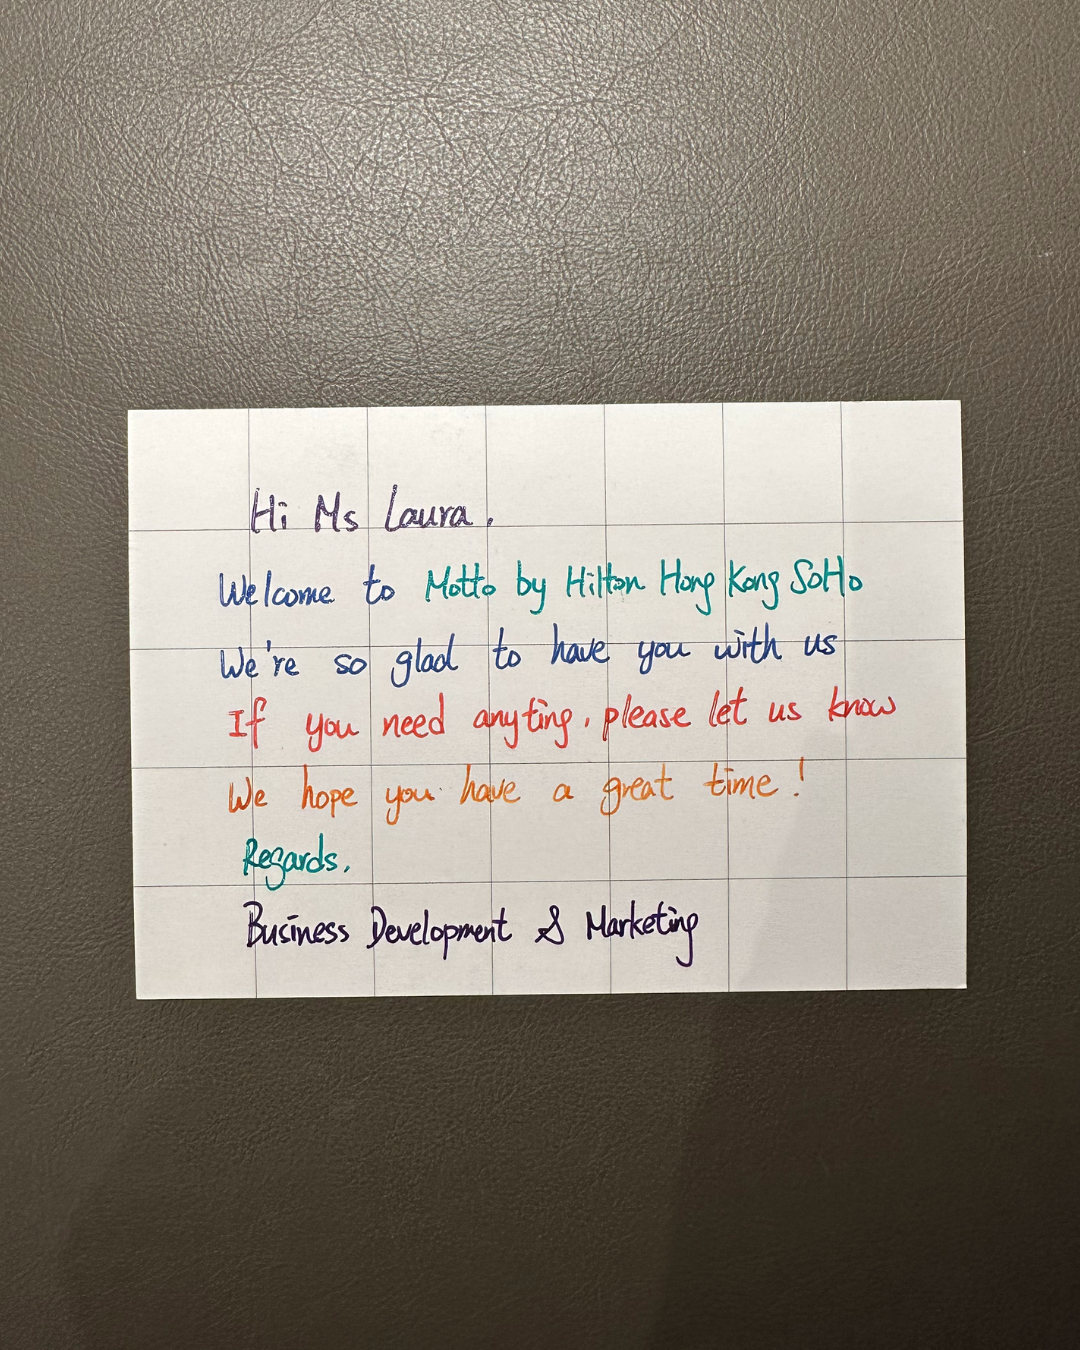 Hi Ms Laura,
Welcome to Motto by Hilton Hong Kong SoHo
We're so glad to have you with us
If you need anyting, please let us know
We hope you have a great time!
Regards,
Business Development & Marketing